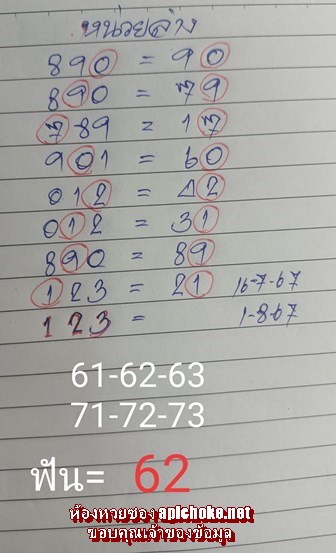 หน่วยล่าง
890 = 90
890 = 79
789 = 17
901 = 60
012 = 42
012 = 31
890 = 89
123 = 21 16-7-67
123 = 1-8-67
61-62-63
71-72-73
ฟัน= 62
ห้องหวยซอง apichoke.net
ขอบคุณเจ้าของข้อมูล